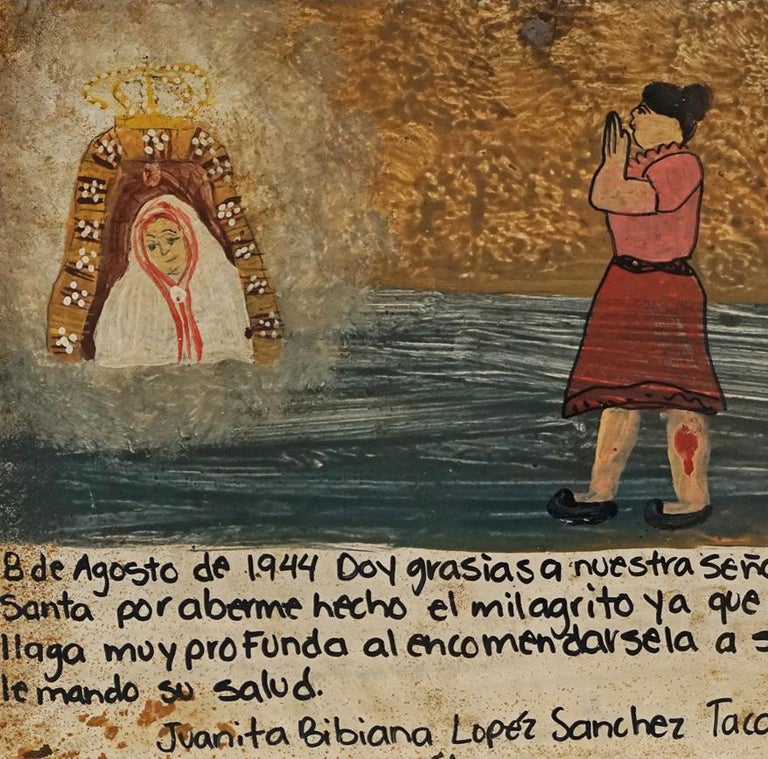 8 de Agosto de 1944 Doy grasias a nuestra seño
Santa por aberme hecho el milagrito ya que
llaga muy profunda al encomendarsela a s
le mando su salud.
Juanita Bibiana Lopéz Sanchez Taca